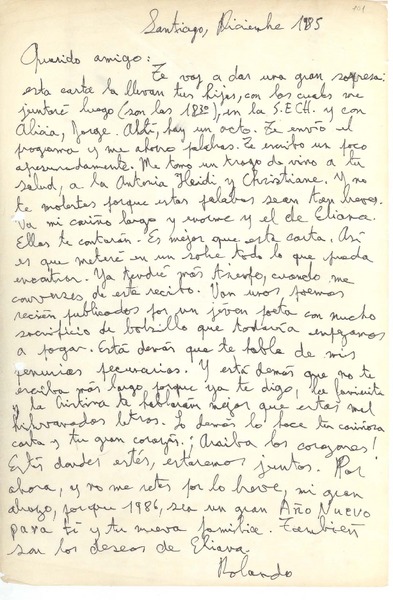 101
Santiago, Diciembre 1985
Querido amigo:
Te voy a dar una gran sorpresa:
esta carta la llevan tus hijas, con las cuales me
juntaré luego (son las 18³⁰), en la S.E.CH. y con
Alicia, Jorge. Allí, hay un acto. Te envío el
programa y me ahorro palabras. Te escribo un poco
apresuradamente. Me tomo un trago de vino a tu
salud, a la Antonia Heidi y Christiane. Y no
te molestes porque estas palabras sean tan breves.
Va mi cariño largo y enorme y el de Eliana.
Ellas te contarán. Es mejor que esta carta. Así
es que meteré en un sobre todo lo que pueda
encontrar. Ya tendré más tiempo, cuando me
converses de este recibo. Van unos poemas
recién publicados por un joven poeta con mucho
sacrificio de bolsillo que todavía empezamos
a pagar. Está demás que te hable de mis
penurias pecuniarias. Y está demás que no te
escriba más largo porque ya te digo, la
y la Cristina te hablarán mejor que estas mil
hilvanadas letras. Lo demás lo hace tu cariñosa
carta y tu gran corazón. ¡Arriba los corazones!
Estés donde estés, estaremos juntos. Por
ahora, y no me retes por lo breve, mi gran
abrazo, porque 1986, sea un gran Año Nuevo
para ti y tu nueva familia. También
son los deseos de Eliana.
Rolando